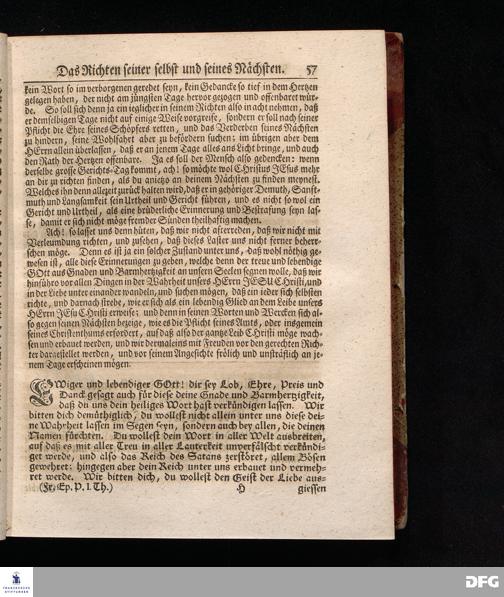 Das Richten seiner selbst und seines Nächsten. 57
kein Wort so im verborgenen geredet seyn, kein Gedancke so tief in dem Hertzen
gelegen haben, der nicht am jüngsten Tage hervor gezogen und offenbaret wür-
de. So soll sich denn ja ein ieglicher in seinem Richten also in acht nehmen, daß
er demselbigen Tage nicht auf einige Weise vorgreife, sondern er soll nach seiner
Pflicht die Ehre seines Schöpfers retten, und das Verderben seines Nächsten
zu hindern, seine Wohlfahrt aber zu befördern suchen; im übrigen aber dem
HErrn allein überlassen, daß er an jenem Tage alles ans Licht bringe, und auch
den Rath der Hertzen offenbare. Ja es soll der Mensch also gedencken: wenn
derselbe grosse Gerichts-Tag kommt, ach! so möchte wol Christus JEsus mehr
an dir zu richten finden, als du anietzo an deinem Nächsten zu finden meynest.
Welches ihn denn allezeit zurück halten wird, daß er in gehöriger Demuth, Sanft-
muth und Langsamkeit sein Urtheil und Gericht führen, und es nicht so wol ein
Gericht und Urtheil, als eine brüderliche Erinnerung und Bestrafung seyn las-
se, damit er sich nicht möge fremder Sünden theilhaftig machen.
Ach! so lasset uns denn hüten, daß wir nicht afterreden, daß wir nicht mit
Verleumdung richten, und zusehen, daß dieses Laster uns nicht ferner beherr-
schen möge. Denn es ist ja ein solcher Zustand unter uns, daß wohl nöthig ge-
wesen ist, alle diese Erinnerungen zu geben, welche denn der treue und lebendige
GOtt aus Gnaden und Barmhertzigkeit an unsern Seelen segnen wolle, daß wir
hinführo vor allen Dingen in der Wahrheit unsers HErrn JESU Christi, und
in der Liebe unter einander wandeln, und suchen mögen, daß ein ieder sich selbsten
richte, und darnach strebe, wie er sich als ein lebendig Glied an dem Leibe unsers
HErrn JEsu Christi erweise; und denn in seinen Worten und Wercken sich al-
so gegen seinen Nächsten bezeige, wie es die Pflicht seines Amts, oder insgemein
seines Christenthums erfordert, auf daß also der gantze Leib Christi möge wach-
sen und erbauet werden, und wir dermaleins mit Freuden vor den gerechten Rich-
ter dargestellet werden, und vor seinem Angesichte frölich und unsträflich an je-
nem Tage erscheinen mögen.
EWiger und lebendiger GOtt! dir sey Lob, Ehre, Preis und
Danck gesagt auch für diese deine Gnade und Barmhertzigkeit,
daß du uns dein heiliges Wort hast verkündigen lassen. Wir
bitten dich demüthiglich, du wollest nicht allein unter uns diese dei-
ne Wahrheit lassen im Segen seyn, sondern auch bey allen, die deinen
Namen fürchten. Du wollest dein Wort in aller Welt ausbreiten,
auf daß es mit aller Treu in aller Lauterkeit unverfälscht verkündi-
get werde, und also das Reich des Satans zerstöret, allem Bösen
gewehret; hingegen aber dein Reich unter uns erbauet und vermeh-
ret werde. Wir bitten dich, du wollest den Geist der Liebe aus-
(Fr. Ep. P. I. Th.) H giessen
FRANCKESCHE
STIFTUNGEN
DFG